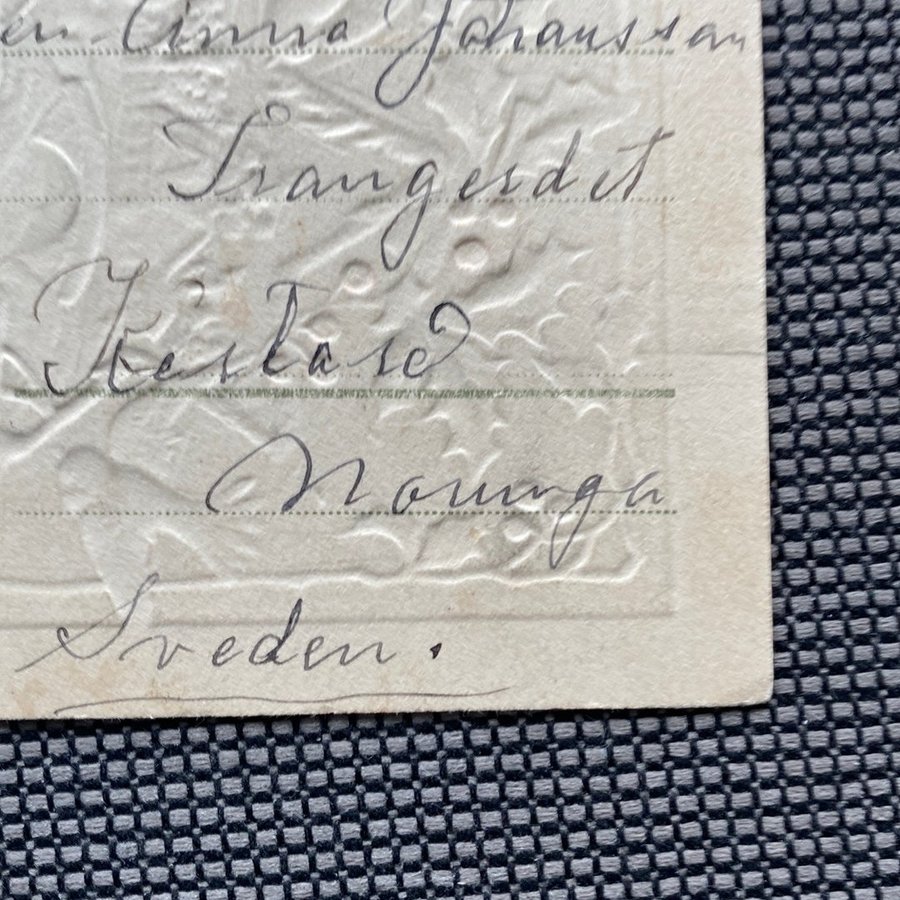 en Anna Johansson
Trangerdet
Kestasd
Norunga
Sveden.